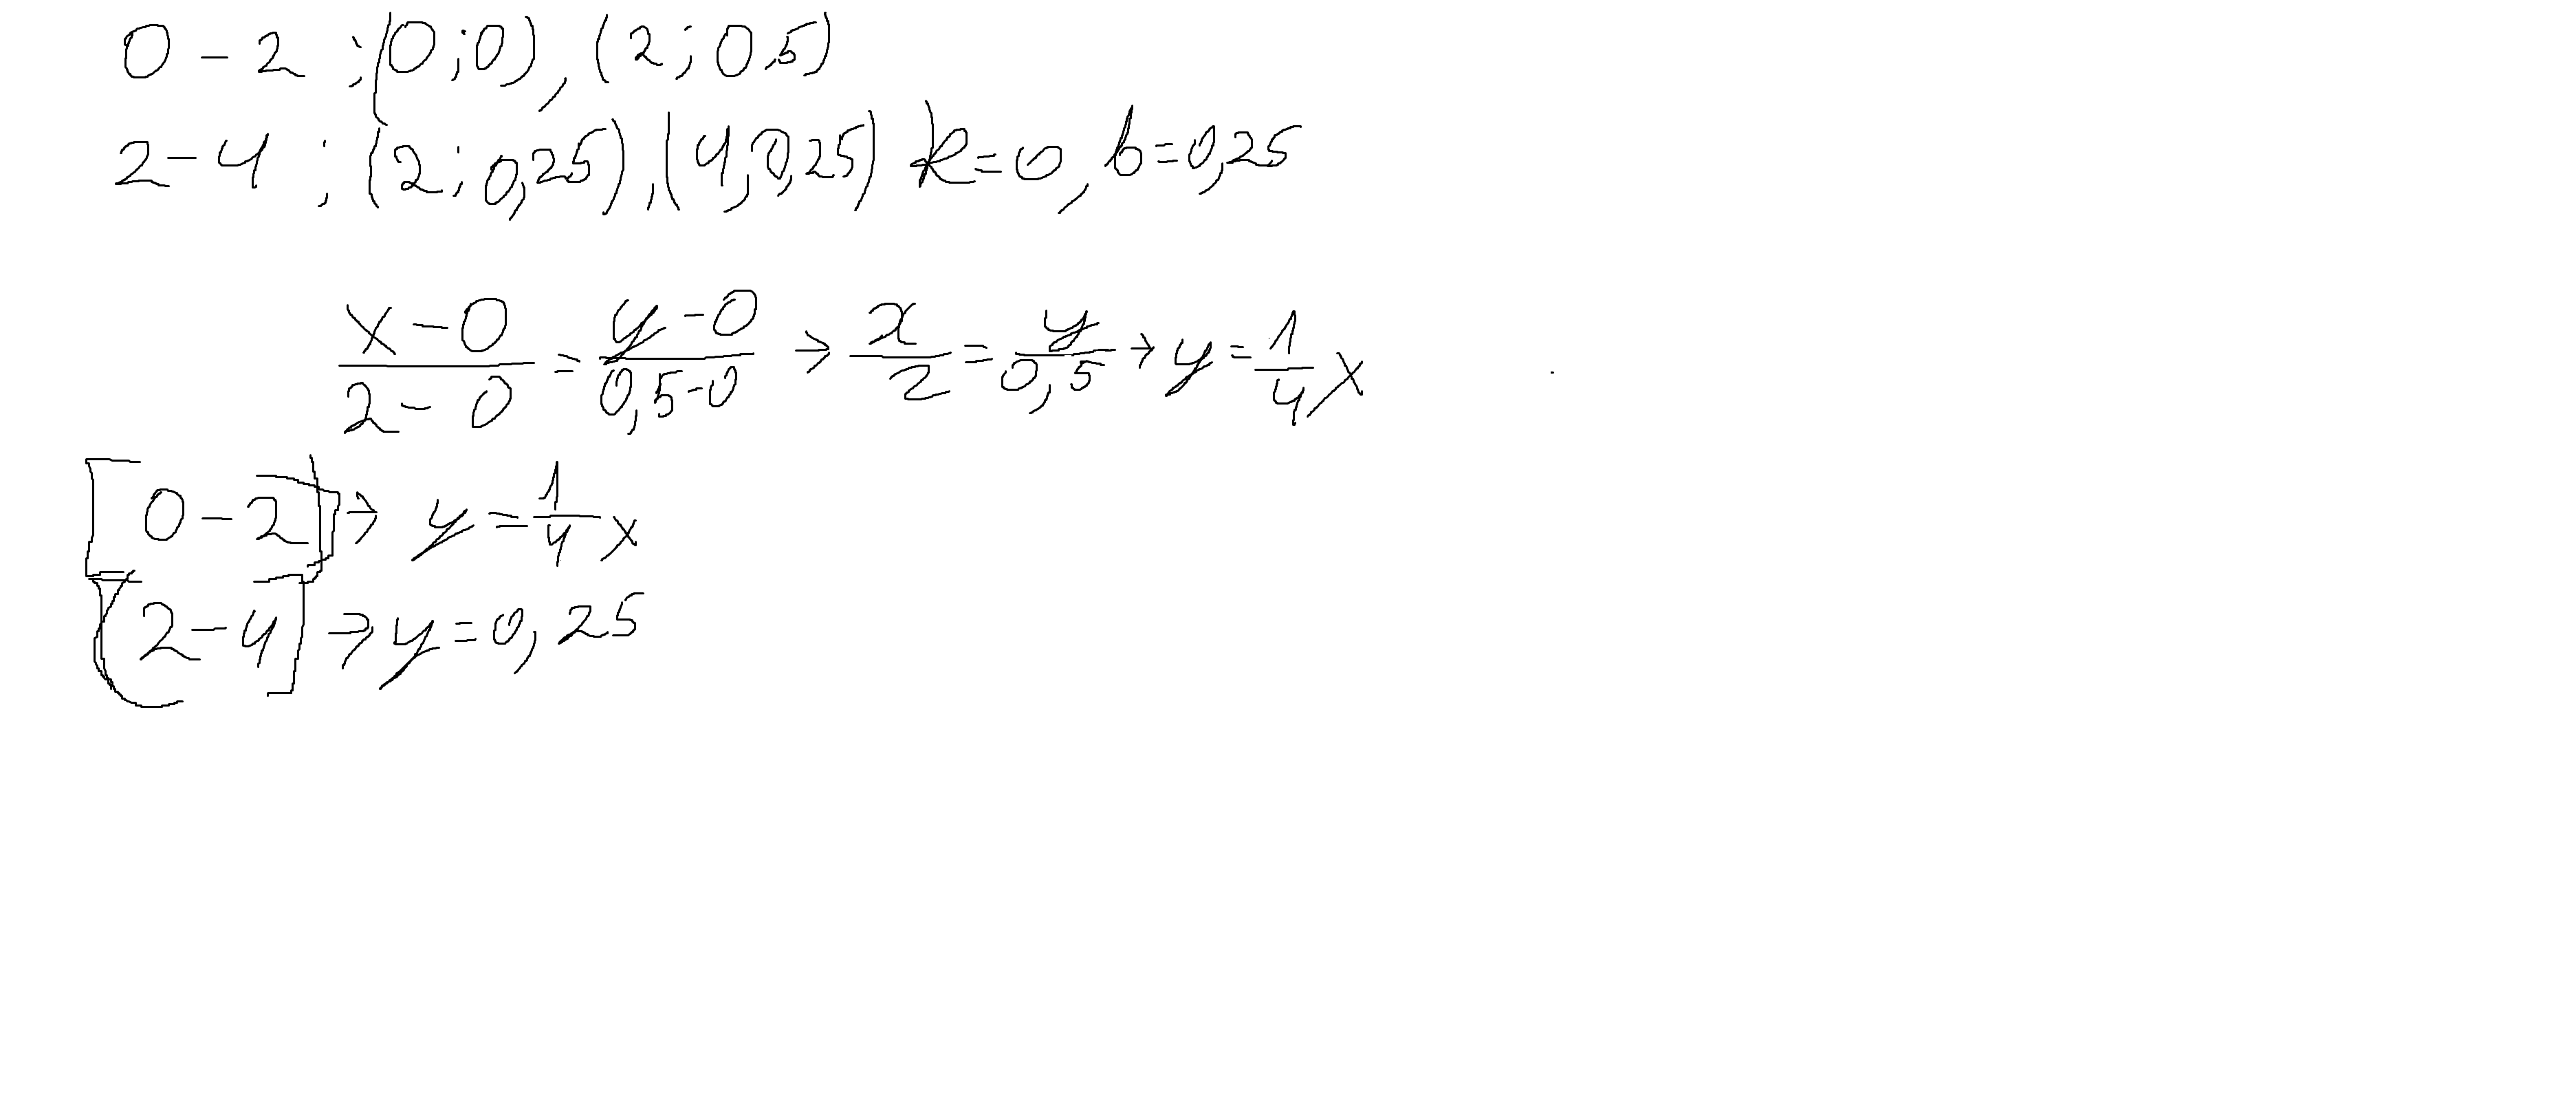 0 - 2 ; (0;0), (2; 0,5)
2 - 4 ; (2; 0,25), (4, 0,25) k=0, b=0,25
x-0/2-0 = y-0/0,5-0 → x/2 = y/0,5 → y = 1/4 x
[0 - 2] → y = 1/4 x
(2 - 4] → y = 0,25